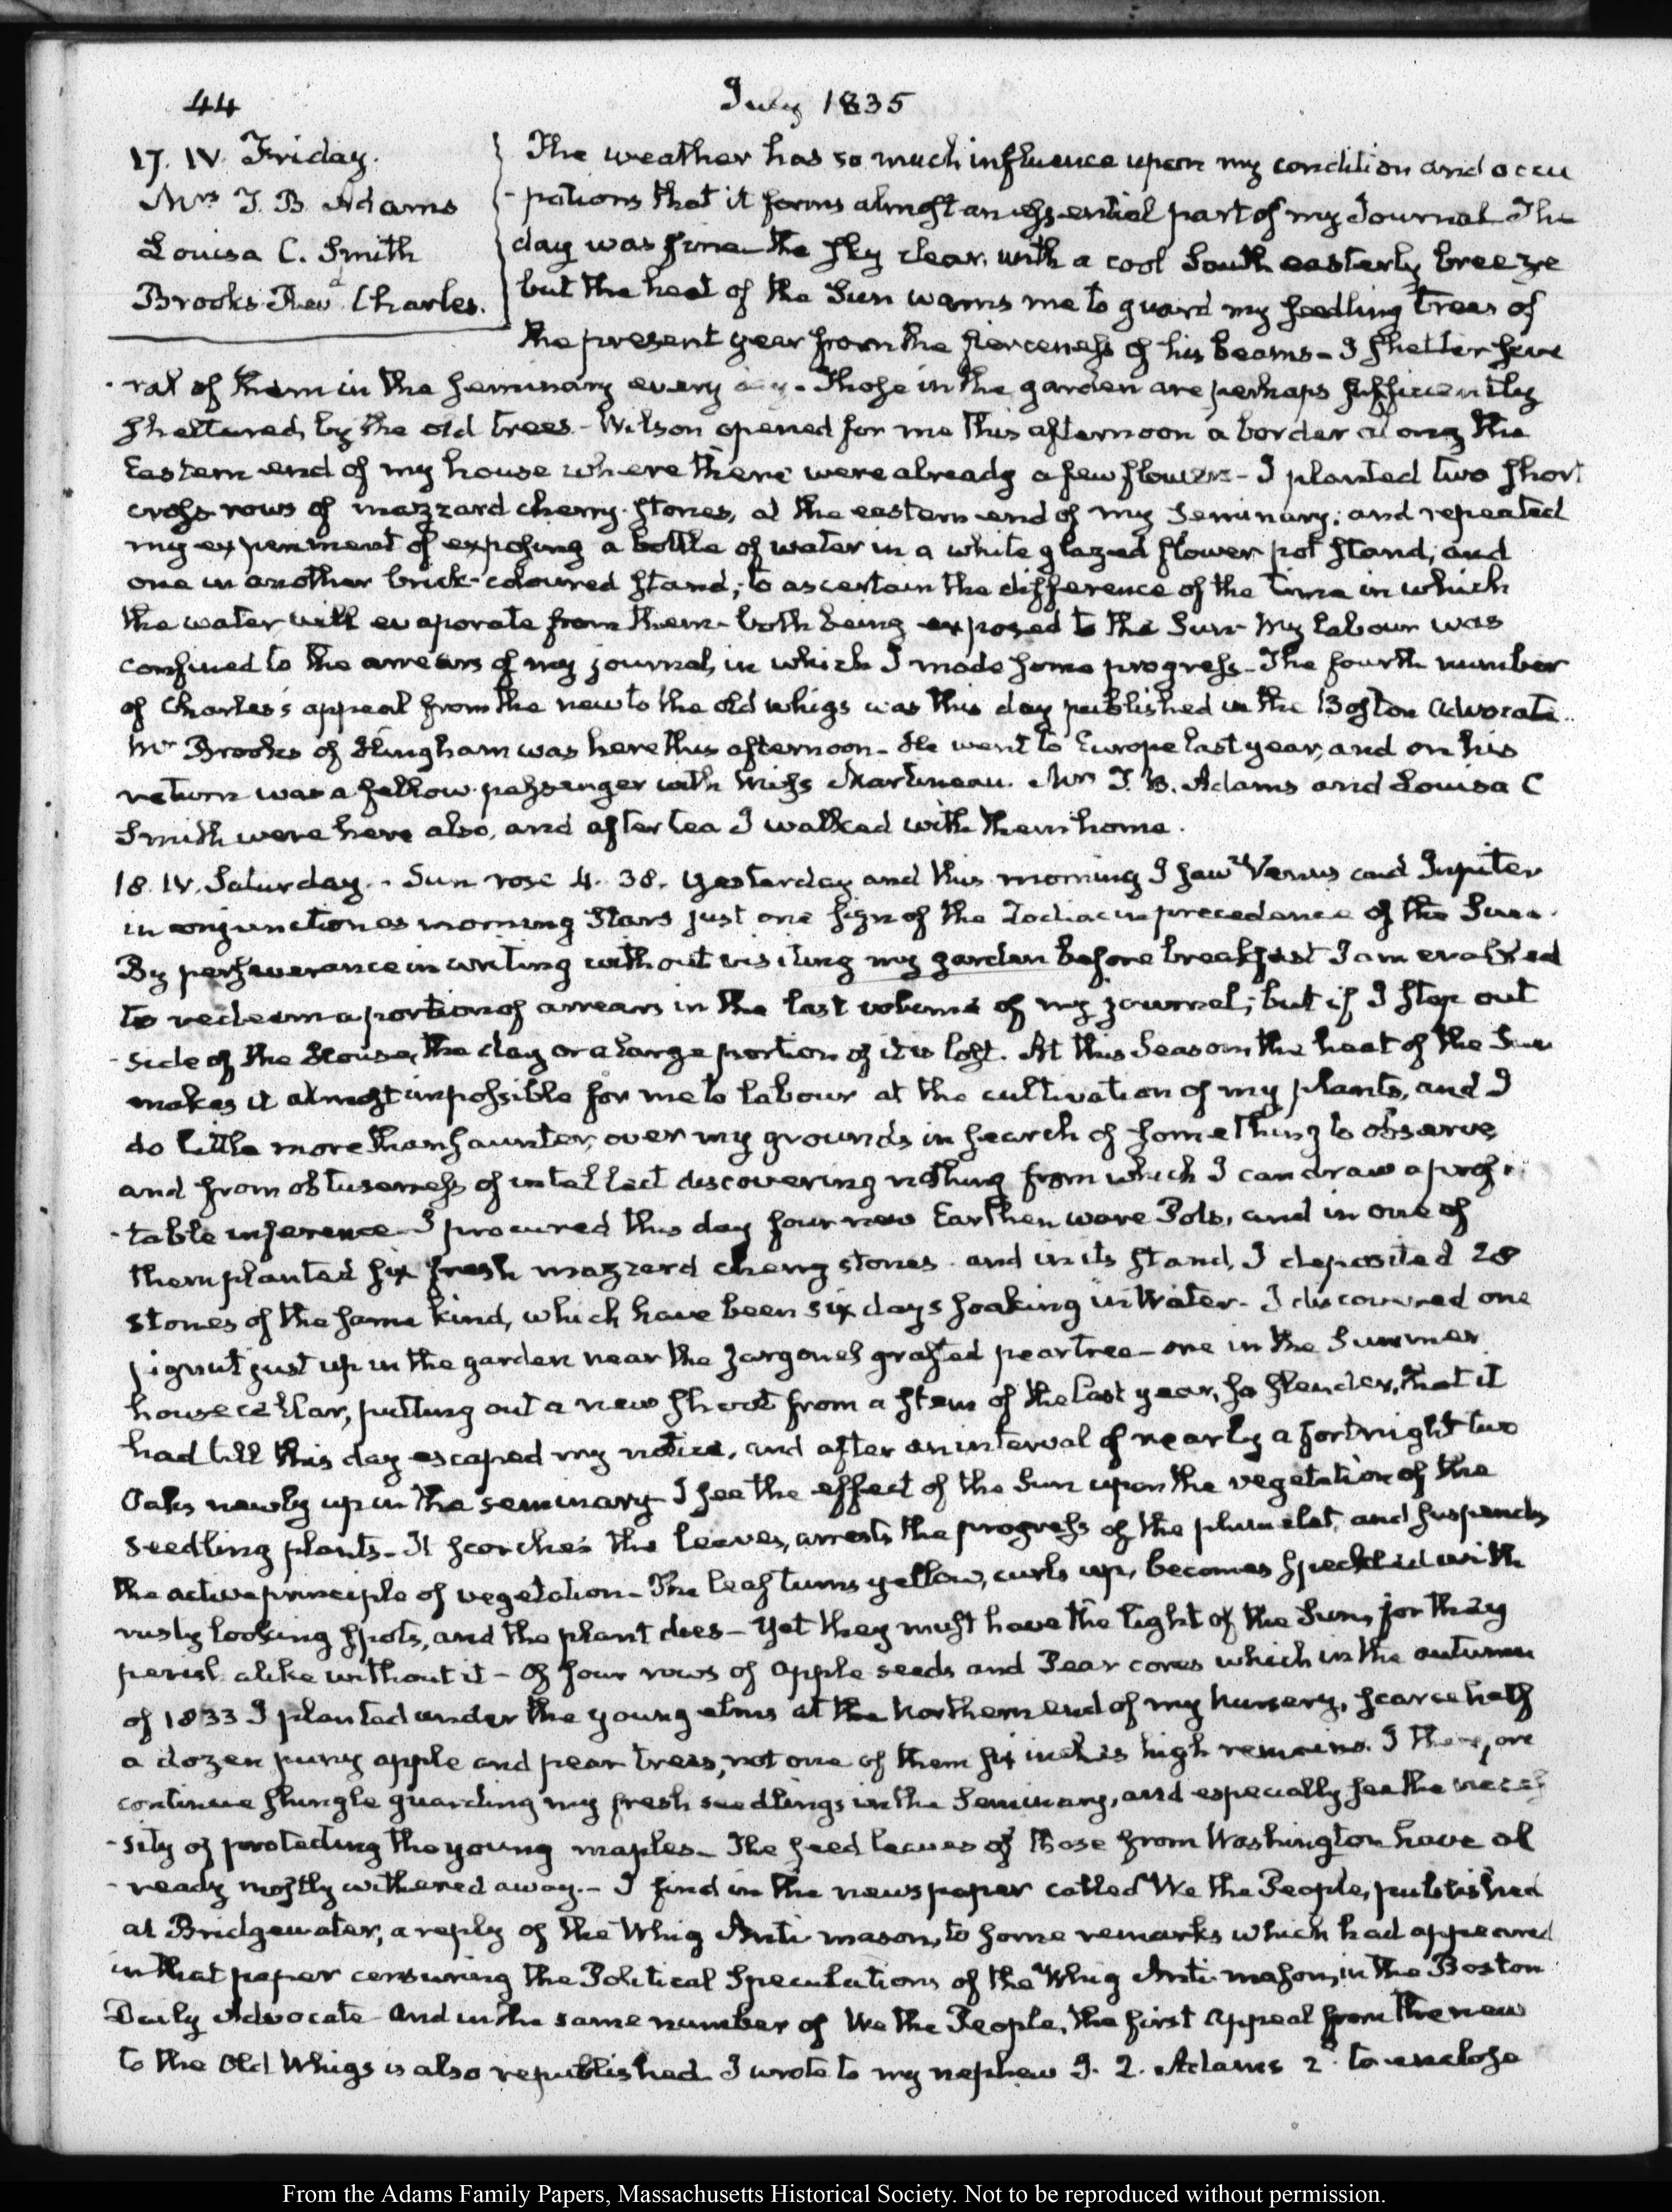 44
July 1835
17. IV. Friday.
Mrs T. B. Adams
Louisa C. Smith
Brooks Revd Charles.
The weather has so much influence upon my condition and occu
-pations that it forms almost an essential part of my Journal. The
day was fine the sky clear, with a cool South easterly breeze
but the heat of the Sun warns me to guard my seedling trees of
the present year from the fierceness of his beams - I shelter seve
-ral of them in the Seminary every day - Those in the garden are perhaps sufficiently
sheltered, by the old trees - Wilson opened for me this afternoon a border along the
Eastern end of my house where there were already a few flowers - I planted two short
cross rows of mazzard cherry stones, at the eastern end of my Seminary; and repeated
my experiment of exposing a bottle of water in a white glazed flower pot stand, and
one in another brick-coloured stand; to ascertain the difference of the time in which
the water will evaporate from them - both being exposed to the Sun - My labour was
confined to the arrears of my journal, in which I made some progress - The fourth number
of Charles's appeal from the new to the old whigs was this day published in the Boston Advocate.
Mr Brooks of Hingham was here this afternoon - He went to Europe last year, and on his
return was a fellow passenger with Miss Martineau. Mrs T. B. Adams and Louisa C
Smith were here also, and after tea I walked with them home.
18. IV. Saturday. - Sun rose 4. 38. Yesterday and this morning I saw Venus and Jupiter
in conjunction as morning Stars just one sign of the Zodiac in precedence of the Sun.
By perseverance in writing without visiting my garden before breakfast I am enabled
to redeem a portion of arrears in the last volume of my journal; but if I step out
-side of the House, the day or a large portion of it is lost. At this Season the heat of the Sun
makes it almost impossible for me to labour at the cultivation of my plants, and I
do little more than saunter, over my grounds in search of something to observe,
and from obtuseness of intellect discovering nothing from which I can draw a profi
-table inference - I procured this day four new Earthen ware Pots, and in one of
them planted six fresh mazzard cherry stones and in its stand, I deposited 28
stones of the same kind, which have been six days soaking in Water - I discovered one
pignut just up in the garden near the Jargonel grafted pear tree - one in the Summer
house cellar, putting out a new shoot from a stem of the last year, so slender, that it
had till this day escaped my notice, and after an interval of nearly a fortnight two
Oaks newly up in the seminary - I see the effect of the Sun upon the vegetation of the
seedling plants - It scorches the leaves, arrests the progress of the plumelet, and suspends
the active principle of vegetation - The leaf turns yellow, curls up, becomes speckled with
rusty looking spots, and the plant dies - Yet they must have the light of the Sun, for they
perish alike without it - Of four rows of apple seeds and Pear cores which in the autumn
of 1833 I planted under the young elms at the Northern end of my Nursery, scarce half
a dozen puny apple and pear trees, not one of them six inches high remains. I therefore
continue shingle guarding my fresh seedlings in the Seminary, and especially see the neces
-sity of protecting the young maples - The seed leaves of those from Washington have al
-ready mostly withered away. - I find in the newspaper called We the People, published
at Bridgewater, a reply of the Whig Anti mason, to some remarks which had appeared
in that paper censuring the Political Speculations of the Whig Anti-mason, in the Boston
Daily Advocate - And in the same number of We the People, the first Appeal from the new
to the Old Whigs is also republished. I wrote to my nephew J. Q. Adams 2d. to enclose
From the Adams Family Papers, Massachusetts Historical Society. Not to be reproduced without permission.